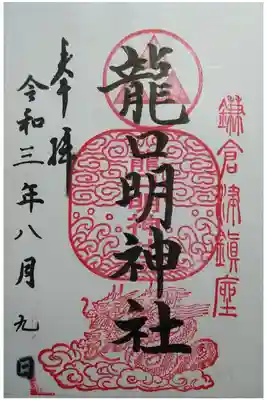 鎌倉津鎮座
龍口明神社
奉拝
令和三年八月九日